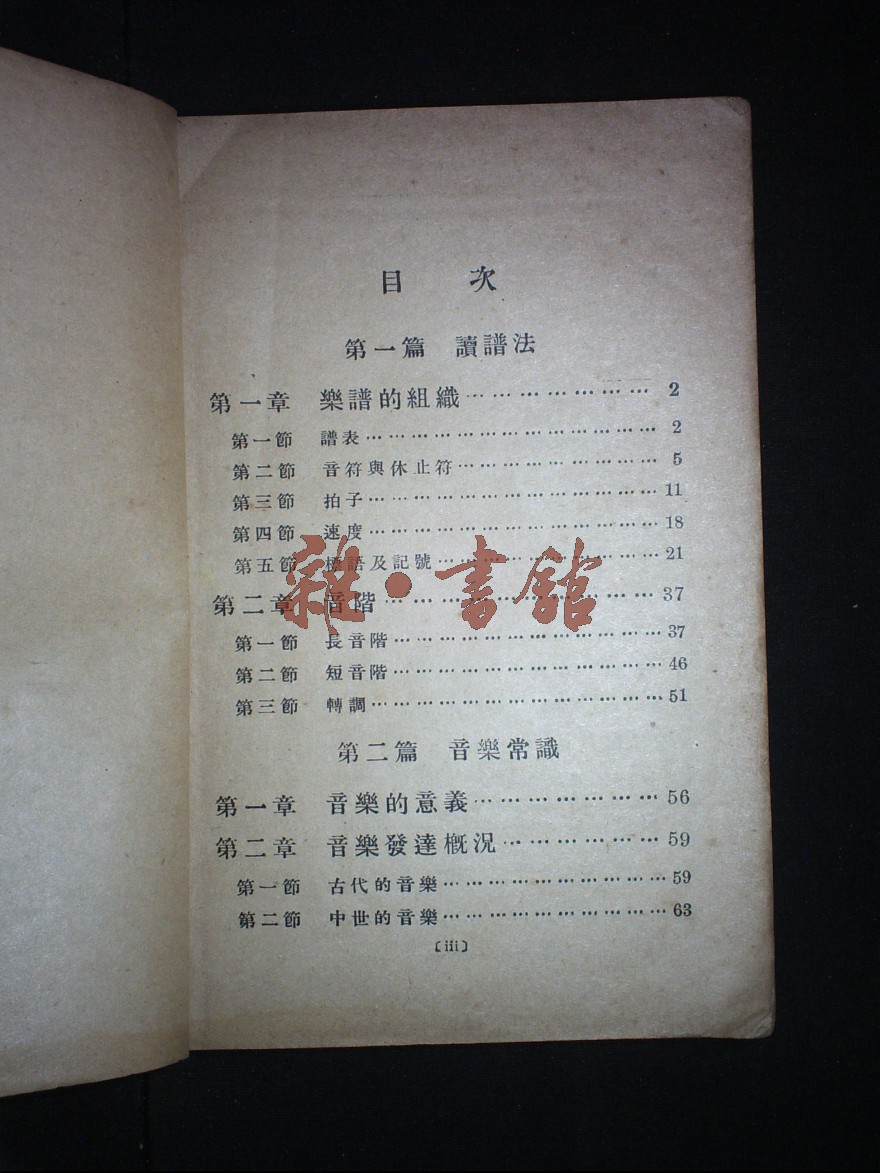 目 次
第一篇 讀譜法
第一章 樂譜的組織 … … … … … … … 2
第一節 譜表 … … … … … … … … … … … … … 2
第二節 音符與休止符 … … … … … … … … … 5
第三節 拍子 … … … … … … … … … … … … … 11
第四節 速度 … … … … … … … … … … … … … 18
第五節 標語及記號 … … … … … … … … … … 21
第二章 音階 … … … … … … … … … … … … 37
雜·書館
第一節 長音階 … … … … … … … … … … … … 37
第二節 短音階 … … … … … … … … … … … … 46
第三節 轉調 … … … … … … … … … … … … … 51
第二篇 音樂常識
第一章 音樂的意義 … … … … … … … … 56
第二章 音樂發達概況 … … … … … … … 59
第一節 古代的音樂 … … … … … … … … … … 59
第二節 中世的音樂 … … … … … … … … … … 63
〔iii〕